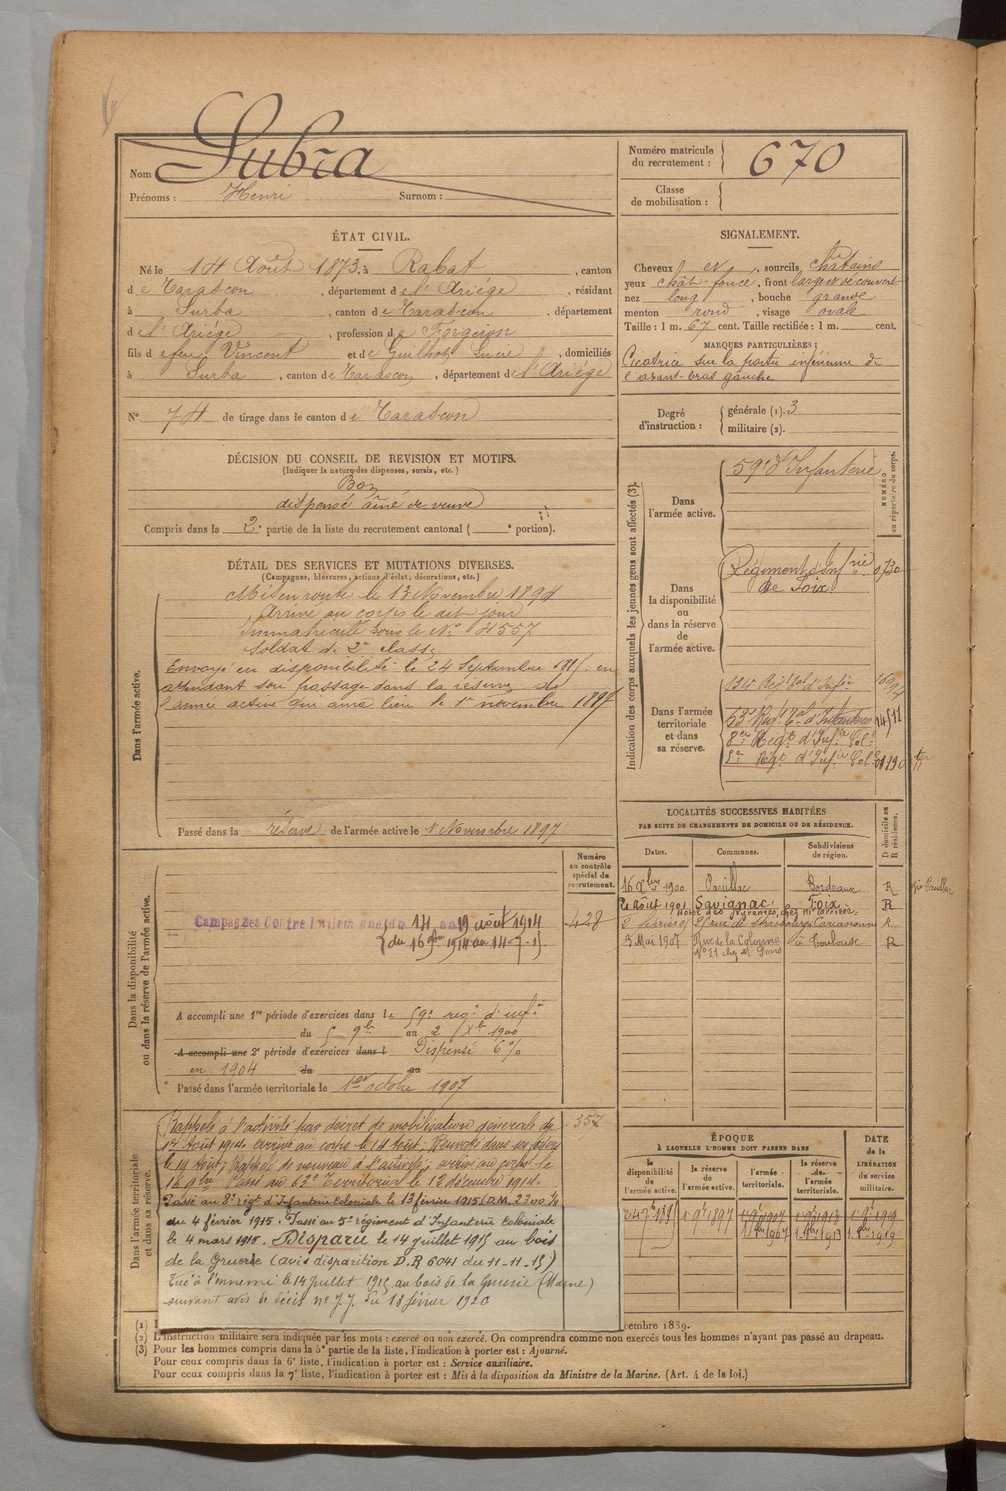 Nom Lubra
Prénoms : Henri Surnom :
Numéro matricule du recrutement : 670
Classe de mobilisation :
ÉTAT CIVIL.
Né le 14 Août 1873, à Rabat, canton
de Tarascon, département de l'Ariège, résidant
à Surba, canton de Tarascon, département
de l'Ariège, profession de Forgeron
fils de feu Vincent et de Guilhot Lucie, domiciliés
à Surba, canton de Tarascon, département de l'Ariège
N° 74 de tirage dans le canton de Tarascon
SIGNALEMENT.
Cheveux et, sourcils châtains
yeux chât- foncé, front large et découvert
nez long, bouche grande
menton rond, visage ovale
Taille : 1 m. 67 cent. Taille rectifiée : 1 m. cent.
MARQUES PARTICULIÈRES :
Cicatrice sur la partie inférieure de
l'avant-bras gauche
Degré d'instruction : générale (1). 3
militaire (2).
DÉCISION DU CONSEIL DE REVISION ET MOTIFS.
(Indiquer la nature des dispenses, sursis, etc.)
Bon
dispensé aîné de veuve
Compris dans la 2e partie de la liste du recrutement cantonal ( e portion).
DÉTAIL DES SERVICES ET MUTATIONS DIVERSES.
(Campagnes, blessures, actions d'éclat, décorations, etc.)
Dans l'armée active.
Mis en route le 13 Novembre 1894
Arrivé au corps le dit jour
Immatriculé sous le N° 4557
Soldat de 2e classe
Envoyé en disponibilité le 24 Septembre 1895 en
attendant son passage dans la réserve de
l'armée active qui aura lieu le 1er novembre 1897
Passé dans la réserve de l'armée active le 1er Novembre 1897
Indication des corps auxquels les jeunes gens sont affectés (3).
NUMÉRO au répertoire du corps.
Dans l'armée active.
59e d'Infanterie
Dans la disponibilité ou dans la réserve de l'armée active.
Régiment d'Infrie 0730
de Foix
Dans l'armée territoriale et dans sa réserve.
134e Régt Tal d'Infie
63e Regt Tal d'Infanterie 14511
8e Regt d'Infie Cole
5e Régt d'Infie Cole
LOCALITÉS SUCCESSIVES HABITÉES
PAR SUITE DE CHANGEMENTS DE DOMICILE OU DE RÉSIDENCE.
Dates. Communes. Subdivisions de région. D domicile ou R résidence.
16 9bre 1900 Pauillac Bordeaux R
2 Août 1901 Savignac Foix R
Hôtel des Pyrénées, chez Mr
rue de Strasbourg Carcassonne R
3 Mai 1907 Rue de la Colonne Toulouse R
N° 11 chez Mr
Dans la disponibilité ou dans la réserve de l'armée active.
Numéro au contrôle spécial du recrutement.
428
Campagnes Contre l'Allemagne du 14 au 19 août 1914
du 16 9bre 1914 au 14-7-15
A accompli une 1re période d'exercices dans le 59e regt d'infie
du 5 9bre au 2 Xbre 1900
A accompli une 2e période d'exercices dans l Dispensé 6%
en 1904 du au
Passé dans l'armée territoriale le 1er octobre 1907
Dans l'armée territoriale et dans sa réserve.
357
Rappelé à l'activité par décret de mobilisation générale du
1er Août 1914. Arrivé au corps le 14 Août. Renvoyé dans ses foyers
le 19 Août; Rappelé de nouveau à l'activité; arrivé au corps le
16 9bre. Passé au 63e Territorial le 12 décembre 1914.
Passé au 8e régt d'Infanterie Coloniale le 13 février 1915 (D.M. 2300 1/3
du 4 février 1915. Passé au 5e régiment d'Infanterie Coloniale
le 4 mars 1915. Disparu le 14 juillet 1915 au bois
de la Gruerie (avis disparition D.R 6041 du 11-11-15)
Tué à l'ennemi le 14 juillet 1915 au bois de la Gruerie (Marne)
suivant avis de décès n° J.J. du 13 février 1920
ÉPOQUE
À LAQUELLE L'HOMME DOIT PASSER DANS
la disponibilité de l'armée active. la réserve de l'armée active. l'armée territoriale. la réserve de l'armée territoriale.
DATE de la LIBÉRATION du service militaire.
24 7bre 1895 1er 9bre 1897 1er 9bre 1907 1er 9bre 1913 1er 9bre 1919
1er 8bre 1907 1er 8bre 1913 1er 8bre 1919
(1) cembre 1889.
(2) L'instruction militaire sera indiquée par les mots : exercé ou non exercé. On comprendra comme non exercés tous les hommes n'ayant pas passé au drapeau.
(3) Pour les hommes compris dans la 5e partie de la liste, l'indication à porter est : Ajourné.
Pour ceux compris dans la 6e liste, l'indication à porter est : Service auxiliaire.
Pour ceux compris dans la 7e liste, l'indication à porter est : Mis à la disposition du Ministre de la Marine. (Art. 4 de la loi.)